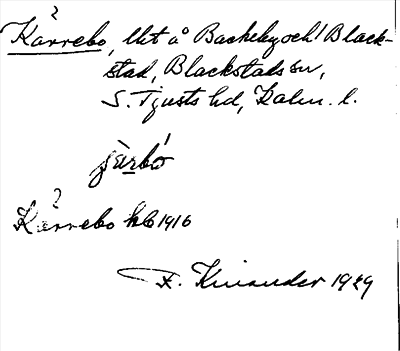 Kärrebo, lht å Backeby och Black-
stad, Blackstads sn,
S. Tjusts hd, Kalm. l.
Kärrebo kb 1916
F. Kinander 1929